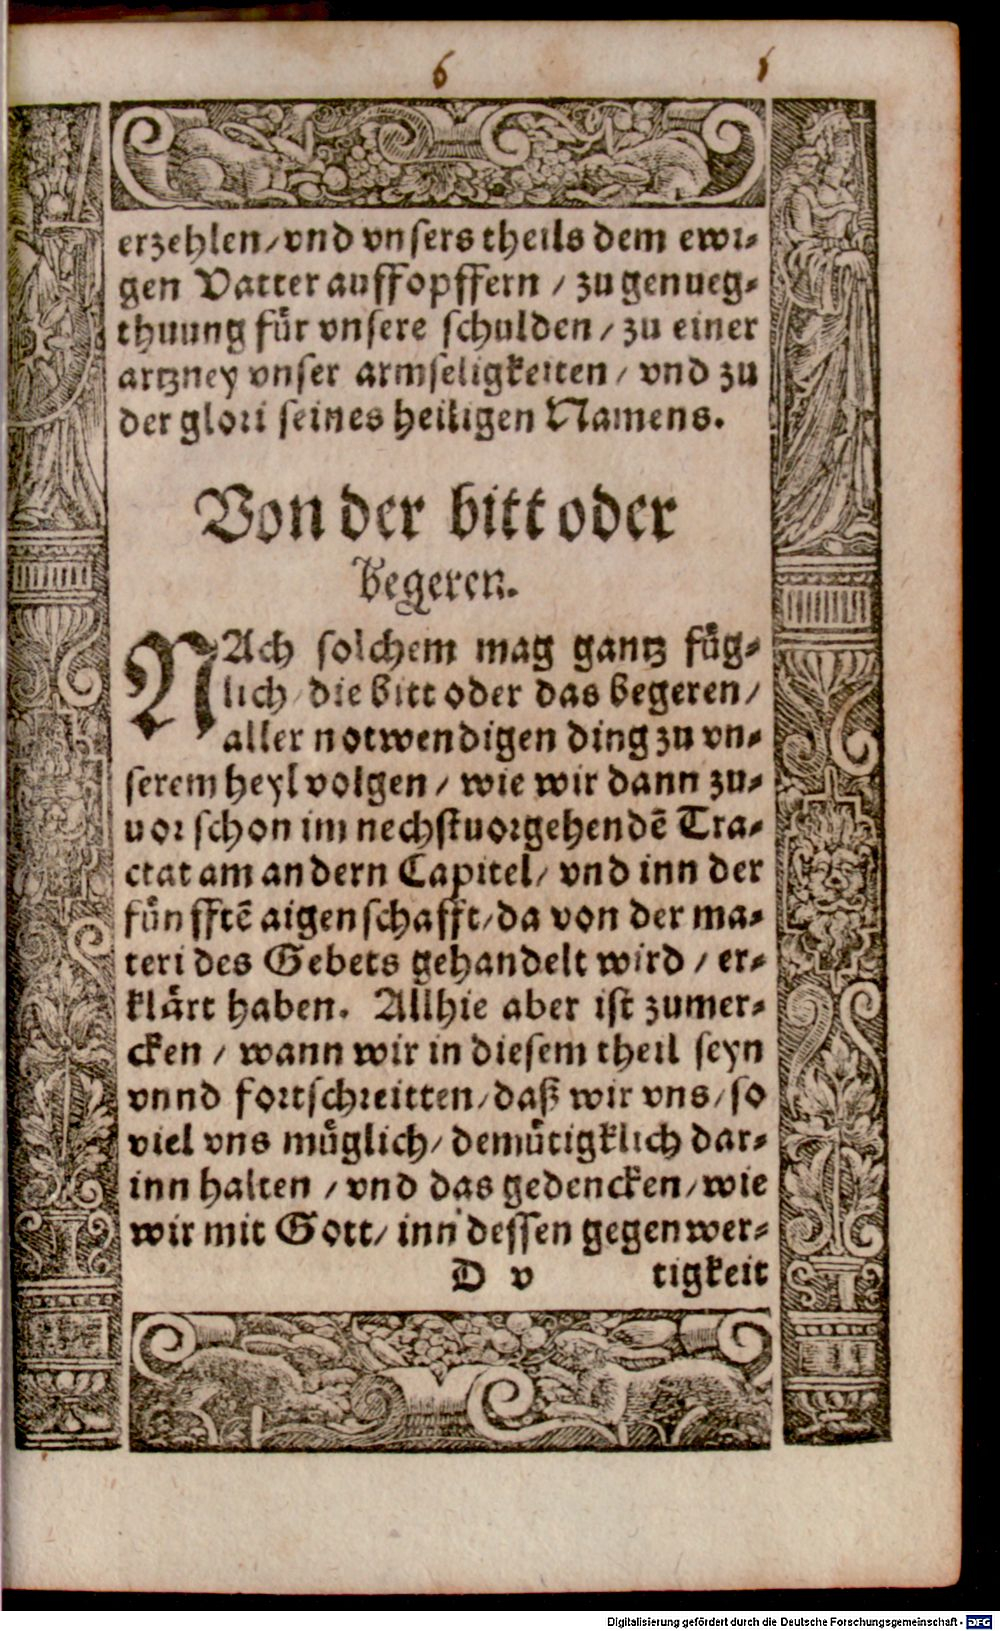 6 1
erzehlen/vnd vnsers theils dem ewi-
gen Vatter auffopffern / zu genueg-
thuung für vnsere schulden/ zu einer
artzney vnser armseligkeiten/ vnd zu
der glori seines heiligen Namens.
Von der bitt oder
begeren.
NAch solchem mag gantz füg-
lich/die bitt oder das begeren/
aller notwendigen ding zu vn-
serem heyl volgen / wie wir dann zu-
uor schon im nechstuorgehendē Tra-
ctat am andern Capitel/ vnd inn der
fünfftē aigenschafft/da von der ma-
teri des Gebets gehandelt wird / er-
klärt haben. Allhie aber ist zumer-
cken / wann wir in diesem theil seyn
vnnd fortschreitten/daß wir vns/so
viel vns müglich/ demütigklich dar-
inn halten / vnd das gedencken/wie
wir mit Gott/ inn dessen gegenwer-
D v tigkeit
Digitalisierung gefördert durch die Deutsche Forschungsgemeinschaft - DFG